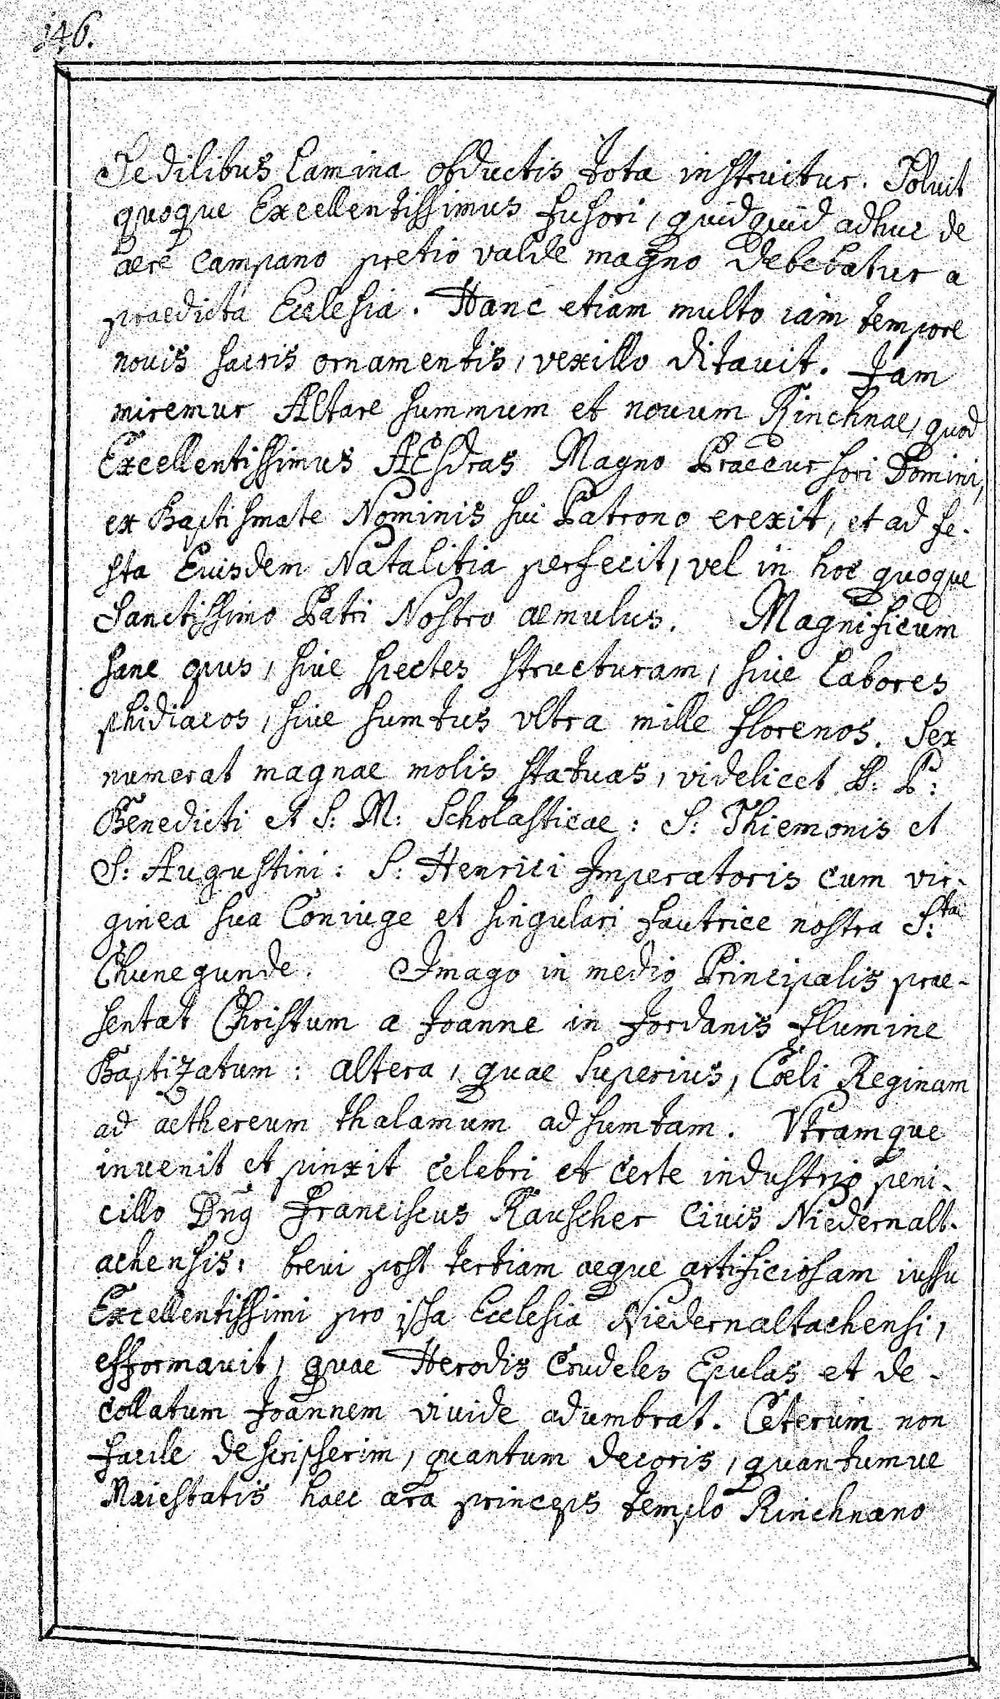 146.
Sedilibus lamina obductis tota instruitur. Soluit
quoque Excellentissimus fusori, quidquid adhuc de
aere campano pretio valde magno debebatur a
praedicta Ecclesia. Hanc etiam multo iam tempore
nouis sacris ornamentis, vexillo ditauit. Jam
miremur Altare summum et nouum Rinchnae, quod
Excellentissimus AEsdras Magno Praecursori Domini,
ex Baptismate Nominis sui Patrono erexit, et ad fe-
sta Eiusdem Natalitia perfecit, vel in hoc quoque
Sanctissimo Patri Nostro aemulus. Magnificum
sane opus, siue spectes structuram, siue labores
phidiacos, siue sumtus vltra mille florenos. Sex
numerat magnae molis statuas, videlicet B: P:
Benedicti et S: M: Scholasticae: S: Thiemonis et
S: Augustini: S: Henrici Imperatoris cum vir-
ginea sua Coniuge et singulari fautrice nostra S:ta
Chunegunde. Imago in medio Principalis prae-
sentat Christum a Joanne in Jordanis flumine
Baptizatum: altera, quae superius, Coeli Reginam
ad aethereum thalamum adsumtam. Vtramque
inuenit et pinxit celebri et certe industrio peni-
cillo Dnq Franciscus Rauscher Ciuis Niedernalt-
achensis. breui post tertiam aeque artificiosam iussu
Excellentissimi pro ipsa Ecclesia Niedernaltachensi,
efformauit, quae Herodis crudeles Epulas et de-
collatum Joannem viuide adumbrat. Ceterum non
facile descripserim, quantum decoris, quantumue
Maiestatis haec ara princeps templo Rinchnano